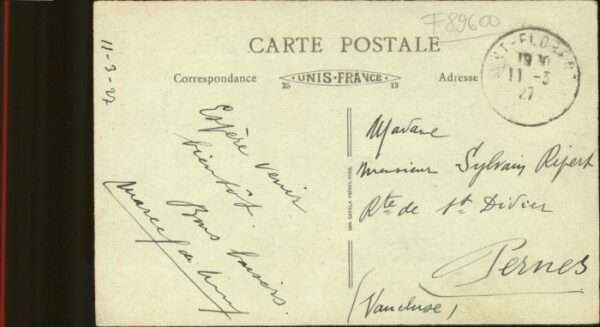 F89600
CARTE POSTALE
Correspondance
UNIS-FRANCE
Adresse
11-3
27
11-3-27
Espère venir
bientôt.
Bons baisers.
Madame
Monsieur Sylvain Ripert
Rte de St Didier
Pernes
(Vaucluse)